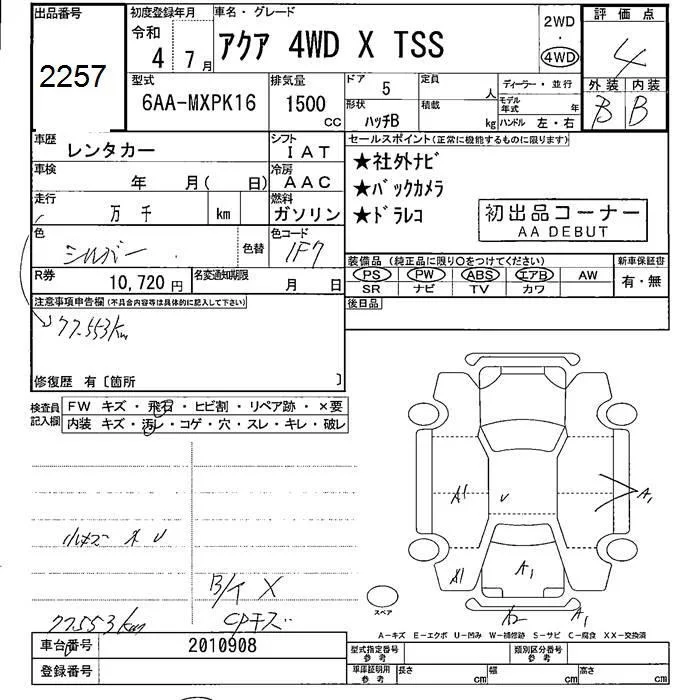 出品番号
2257
初度登録年月
令和
4年 7月
車名・グレード
アクア 4WD X TSS
2WD
・
4WD
評価点
4
外装 内装
B B
型式
6AA-MXPK16
排気量
1500
CC
ドア
5
定員
人
形状
ハッチB
積載
kg
ディーラー・並行
モデル年式
年
ハンドル 左・右
車歴
レンタカー
シフト
IAT
車検
年 月( 日)
冷房
AAC
走行
万 千
km
燃料
ガソリン
色
シルバー
色替
色コード
1F7
R券
10,720円
名変通知期限
月 日
セールスポイント(正常に機能するものに限ります)
★社外ナビ
★バックカメラ
★ドラレコ
初出品コーナー
AA DEBUT
装備品(純正品に限り〇をつけてください)
新車保証書
PS PW ABS エアB AW
SR ナビ TV カワ
有・無
後日品
注意事項申告欄(不具合内容等は具体的に記入して下さい)
77.553km
修復歴 有〔箇所 〕
検査員
記入欄
FW キズ・飛石・ヒビ割・リペア跡・×要
内装 キズ・汚レ・コゲ・穴・スレ・キレ・破レ
B/イ X
CPキズ
77.553km
A1
U
A1
A1
A1
A2
A1
スペア
A-キズ E-エクボ U-凹み W-補修跡 S-サビ C-腐食 XX-交換済
車台番号
2010908
登録番号
型式指定番号
参考
類別区分番号
参考
車庫証明用
参考
長さ
cm
幅
cm
高さ
cm